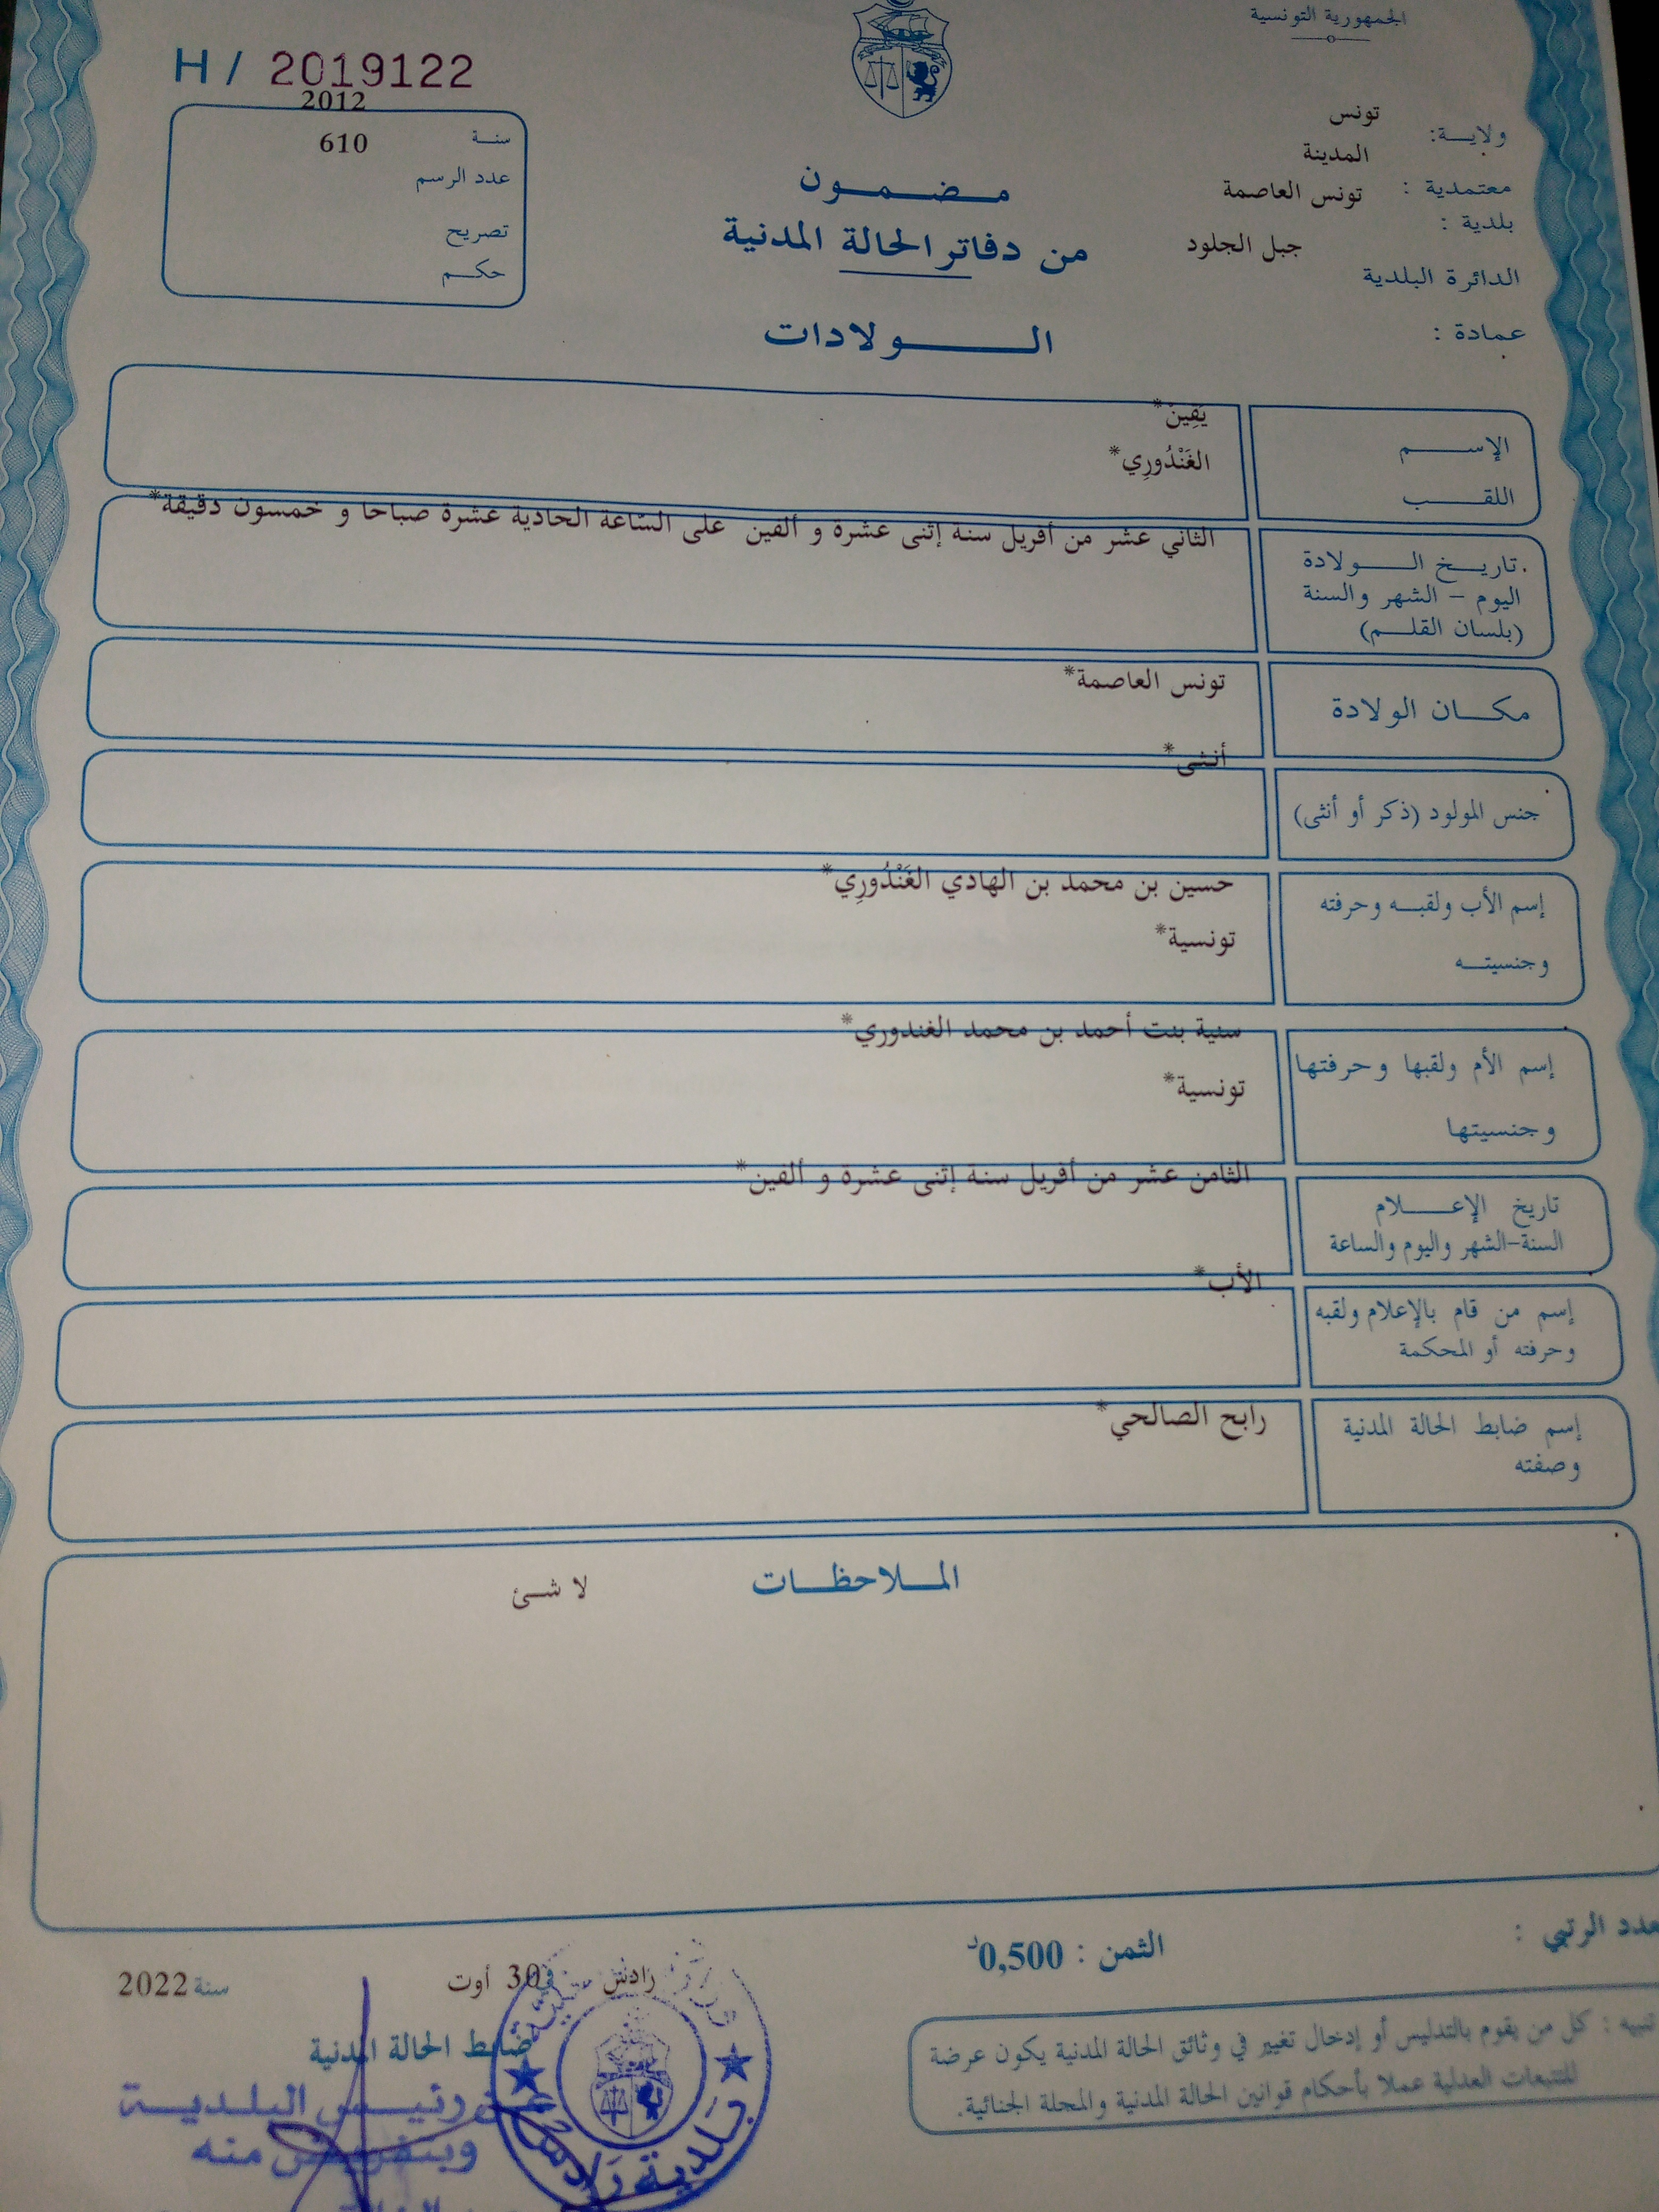 الجمهورية التونسية
H / 2019122
2012
سنة
610
عدد الرسم
تصريح
حكم
تونس
ولاية:
المدينة
معتمدية :
تونس العاصمة
بلدية :
جبل الجلود
الدائرة البلدية
عمادة :
مضمون
من دفاتر الحالة المدنية
الولادات
الإسم
يَقِينْ*
اللقب
الغَنْدُورِي*
تاريخ الولادة
اليوم – الشهر والسنة
(بلسان القلم)
الثاني عشر من أفريل سنة إثنى عشرة و ألفين على السّاعة الحادية عشرة صباحا و خمسون دقيقة*
مكان الولادة
تونس العاصمة*
جنس المولود (ذكر أو أنثى)
أنثى*
إسم الأب ولقبه وحرفته
حسين بن محمد بن الهادي الغَنْدُورِي*
وجنسيته
تونسية*
إسم الأم ولقبها وحرفتها
سنية بنت أحمد بن محمد الغندوري*
وجنسيتها
تونسية*
تاريخ الإعلام
السنة-الشهر واليوم والساعة
الثامن عشر من أفريل سنة إثنى عشرة و ألفين*
إسم من قام بالإعلام ولقبه
وحرفته أو المحكمة
الأب*
إسم ضابط الحالة المدنية
وصفته
رابح الصالحي*
الملاحظات
لا شئ
عدد الرتبي :
الثمن : 0,500د
رادس في 30 أوت سنة 2022
ضابط الحالة المدنية
عن رئيس البلدية
وبتفويض منه
بلدية رادس
تنبيه : كل من يقوم بالتدليس أو إدخال تغيير في وثائق الحالة المدنية يكون عرضة
للتتبعات العدلية عملا بأحكام قوانين الحالة المدنية والمجلة الجنائية.